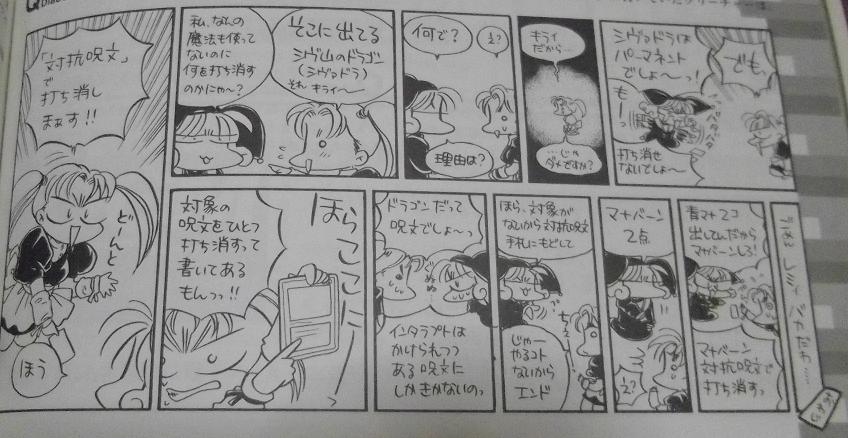 「対抗呪文」
で
打ち消し
まぁす!!
どーんと
ほう
そこに出てる
シヴ山のドラゴン
(シヴ・ドラ)
それ キライ〜
私、なんの
魔法も使って
ないのに
何を打ち消す
のかにゃ〜?
何で?
え?
理由は?
キライ
だから…
…じゃ
ダメですか?
でもっ、
シヴ・ドラは
パーマネント
でしょ〜っ!
もーっ
打ち消せ
ないでしょ〜
ほら
ここに
対象の
呪文をひとつ
打ち消すって
書いてある
もんっっ!!
ドラゴンだって
呪文でしょ〜っ
ぐぬぬ
インタラプトは
かけられつつ
ある呪文に
しかきかないのっ
ほら、対象が
ないから対抗呪文
手札にもどして
ちぇ
じゃー
やるコト
ないから
エンド
マナバーン
2点
え?
青マナ2コ
出してんだから
マナバーンしろ!
マナバーン
対抗呪文で
打ち消すっ
おわり